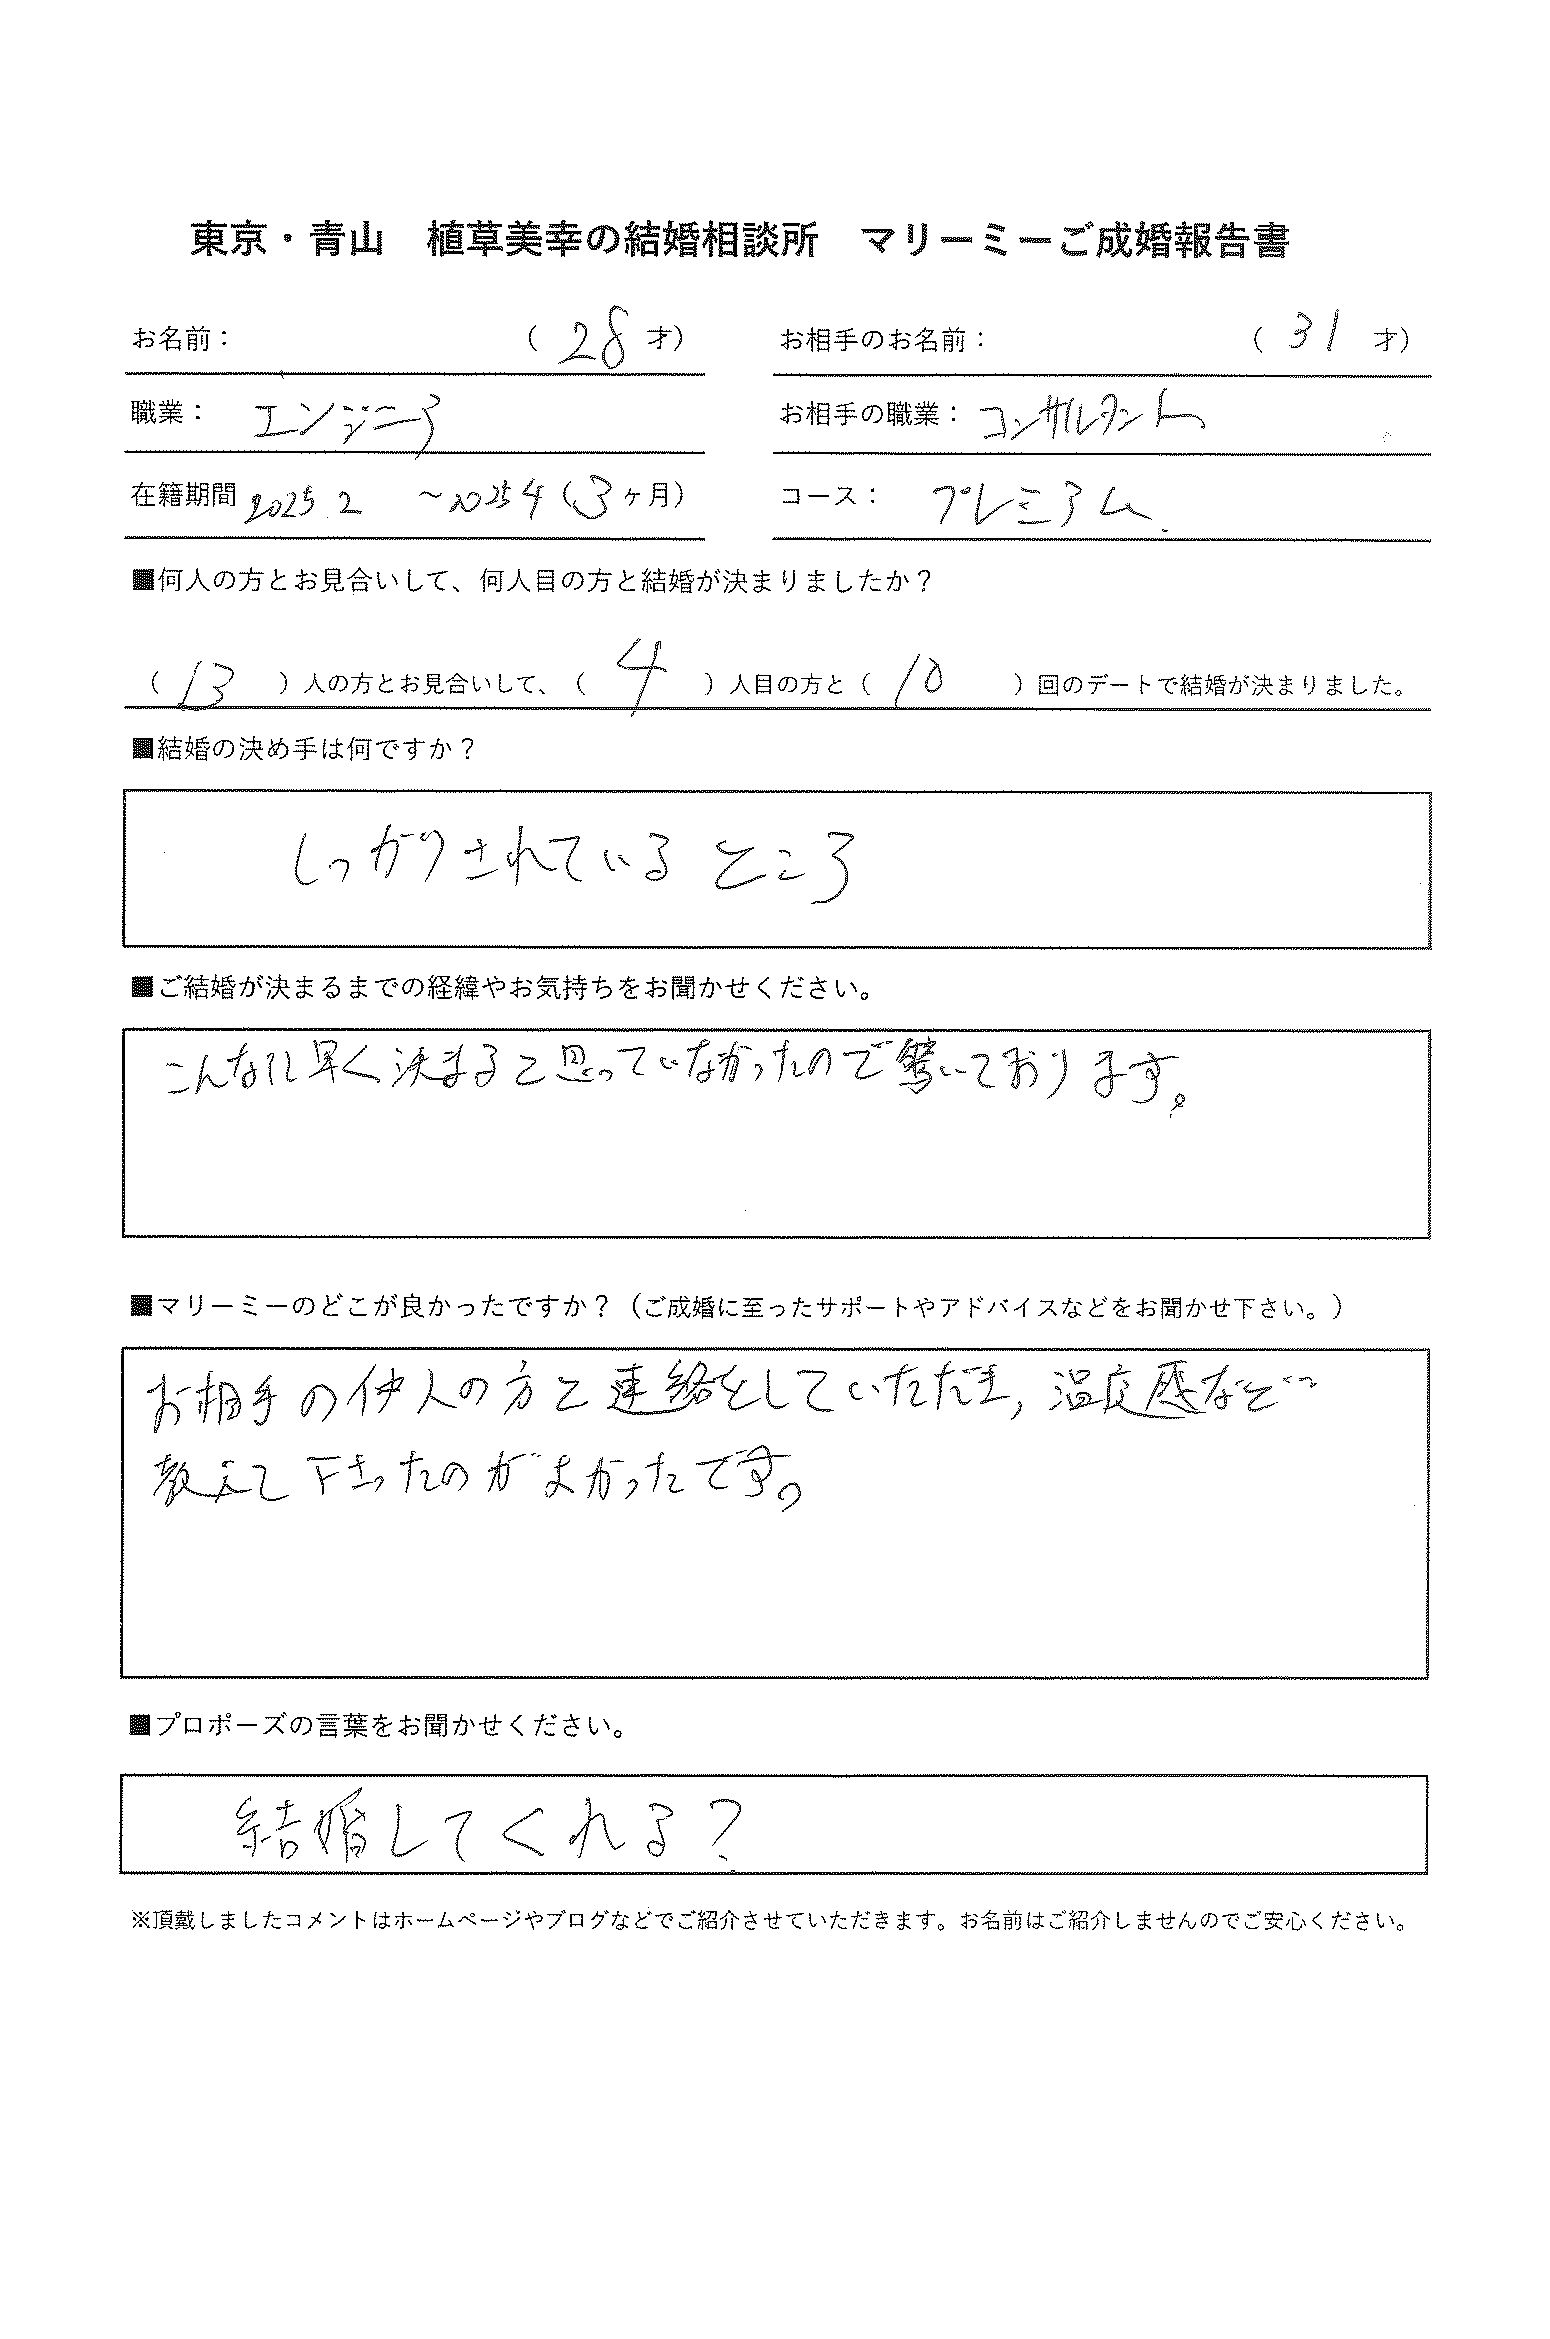 東京・青山　植草美幸の結婚相談所　マリーミーご成婚報告書
お名前：　（28才）　お相手のお名前：　（31才）
職業：エンジニア　お相手の職業：コンサルタント
在籍期間 2025.2 ～2025 4（3ヶ月）　コース：プレミアム
■何人の方とお見合いして、何人目の方と結婚が決まりましたか？
（13）人の方とお見合いして、（4）人目の方と（10）回のデートで結婚が決まりました。
■結婚の決め手は何ですか？
しっかりされているところ
■ご結婚が決まるまでの経緯やお気持ちをお聞かせください。
こんなに早く決まると思っていなかったので驚いております。
■マリーミーのどこが良かったですか？（ご成婚に至ったサポートやアドバイスなどをお聞かせ下さい。）
お相手の仲人の方と連絡をしていただき，温度感などつ
教えて下さったのがよかったです。
■プロポーズの言葉をお聞かせください。
結婚してくれる？
※頂戴しましたコメントはホームページやブログなどでご紹介させていただきます。お名前はご紹介しませんのでご安心ください。